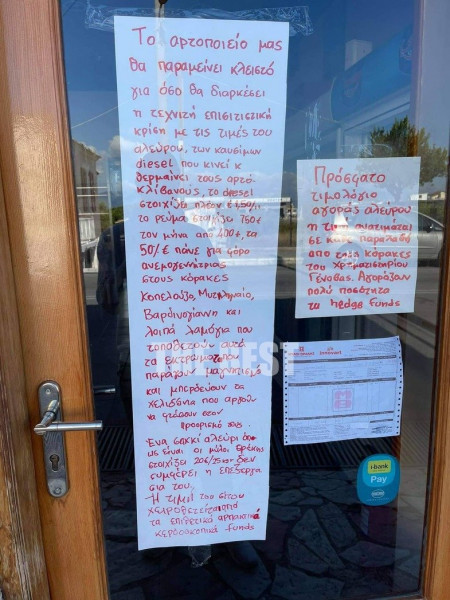 Το αρτοποιείο μας
θα παραμείνει κλειστό
για όσο θα διαρκέσει
η τεχνιτή επισιτιστική
κρίση με τις τιμές του
αλεύρου, των καυσίμων
diesel που κινεί κ
θερμαίνει τους αρτο-
κλιβάνους, το diesel
στοιχίζει πλέον € 1,50/λ.
το ρεύμα στοιχίζει 750€
τον μήνα από 400€, τα
50/€ πάνε για φόρο
ανεμογεννήτριας
στους κόρακες
Κοπελούζο, Μυτιληναίο,
Βαρδινογιάννη και
λοιπά λαμόγια που
τοποθετούν αυτά
τα εκτρώματα που
παράγουν μαγνητισμό
και μπερδεύουν τα
χελιδόνια που αργούν
να φτάσουν στον
προορισμό τους.
Ένα σακκί αλεύρι όπου
ως είναι οι μύλοι Θράκης
στοιχίζει 20€/25κιλ δεν
συμφέρει η επεξεργα
σια του.
Η τιμή του σίτου
χειραγωγείται από
τα επιθετικά αρπακτικά
κερδοσκοπικά funds
Πρόσφατο
τιμολόγιο
αγοράς αλεύρου
η τιμή ανατιμάται
σε κάθε παραλαβή
από τους κόρακες
του Χρηματιστηρίου
Γένοβας. Αγοράζουν
πολύ ποσότητα
τα hedge funds
i-bank
Pay